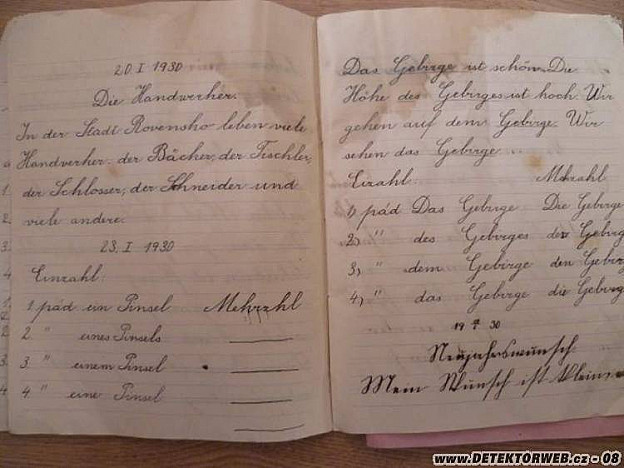 20 I 1930
Die Handwerker.
In der Stadt Rovensko leben viele
Handwerker: der Bäcker, der Tischler,
der Schlosser, der Schneider und
viele andere.
23. I 1930
Einzahl
1. pád ein Pinsel Mehrzahl
2. " eines Pinsels
3. " einem Pinsel
4. " eine Pinsel
Das Gebirge ist schön. Die
Höhe des Gebirges ist hoch. Wir
gehen auf dem Gebirge. Wir
sehen das Gebirge.
Einzahl Mehrzahl
1, pád Das Gebirge Die Gebirge
2, " des Gebirges der Gebirg
3, " dem Gebirge den Gebirg
4, " das Gebirge die Gebirg
30
Neujahrswunsch
Mein Wunsch ist klein,
www.DETEKTORWEB.cz - 08